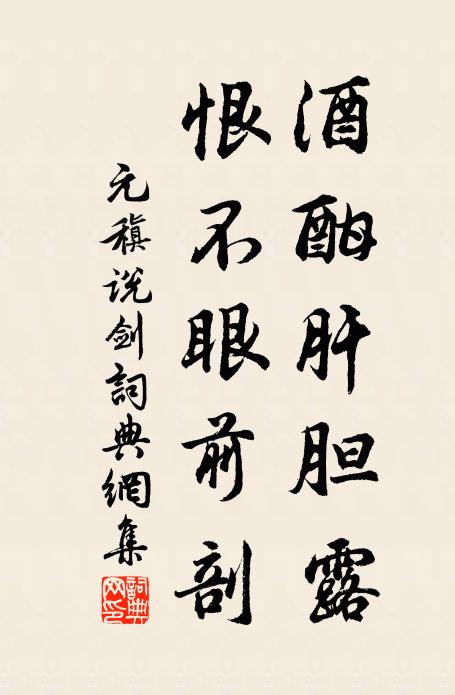 酒酣肝胆露
恨不眼前剖
元稹说剑詞典網集
詞典网印